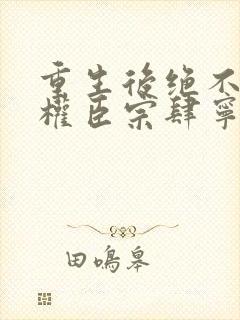 重生後绝不
權臣宗肆寧
田鳴皋